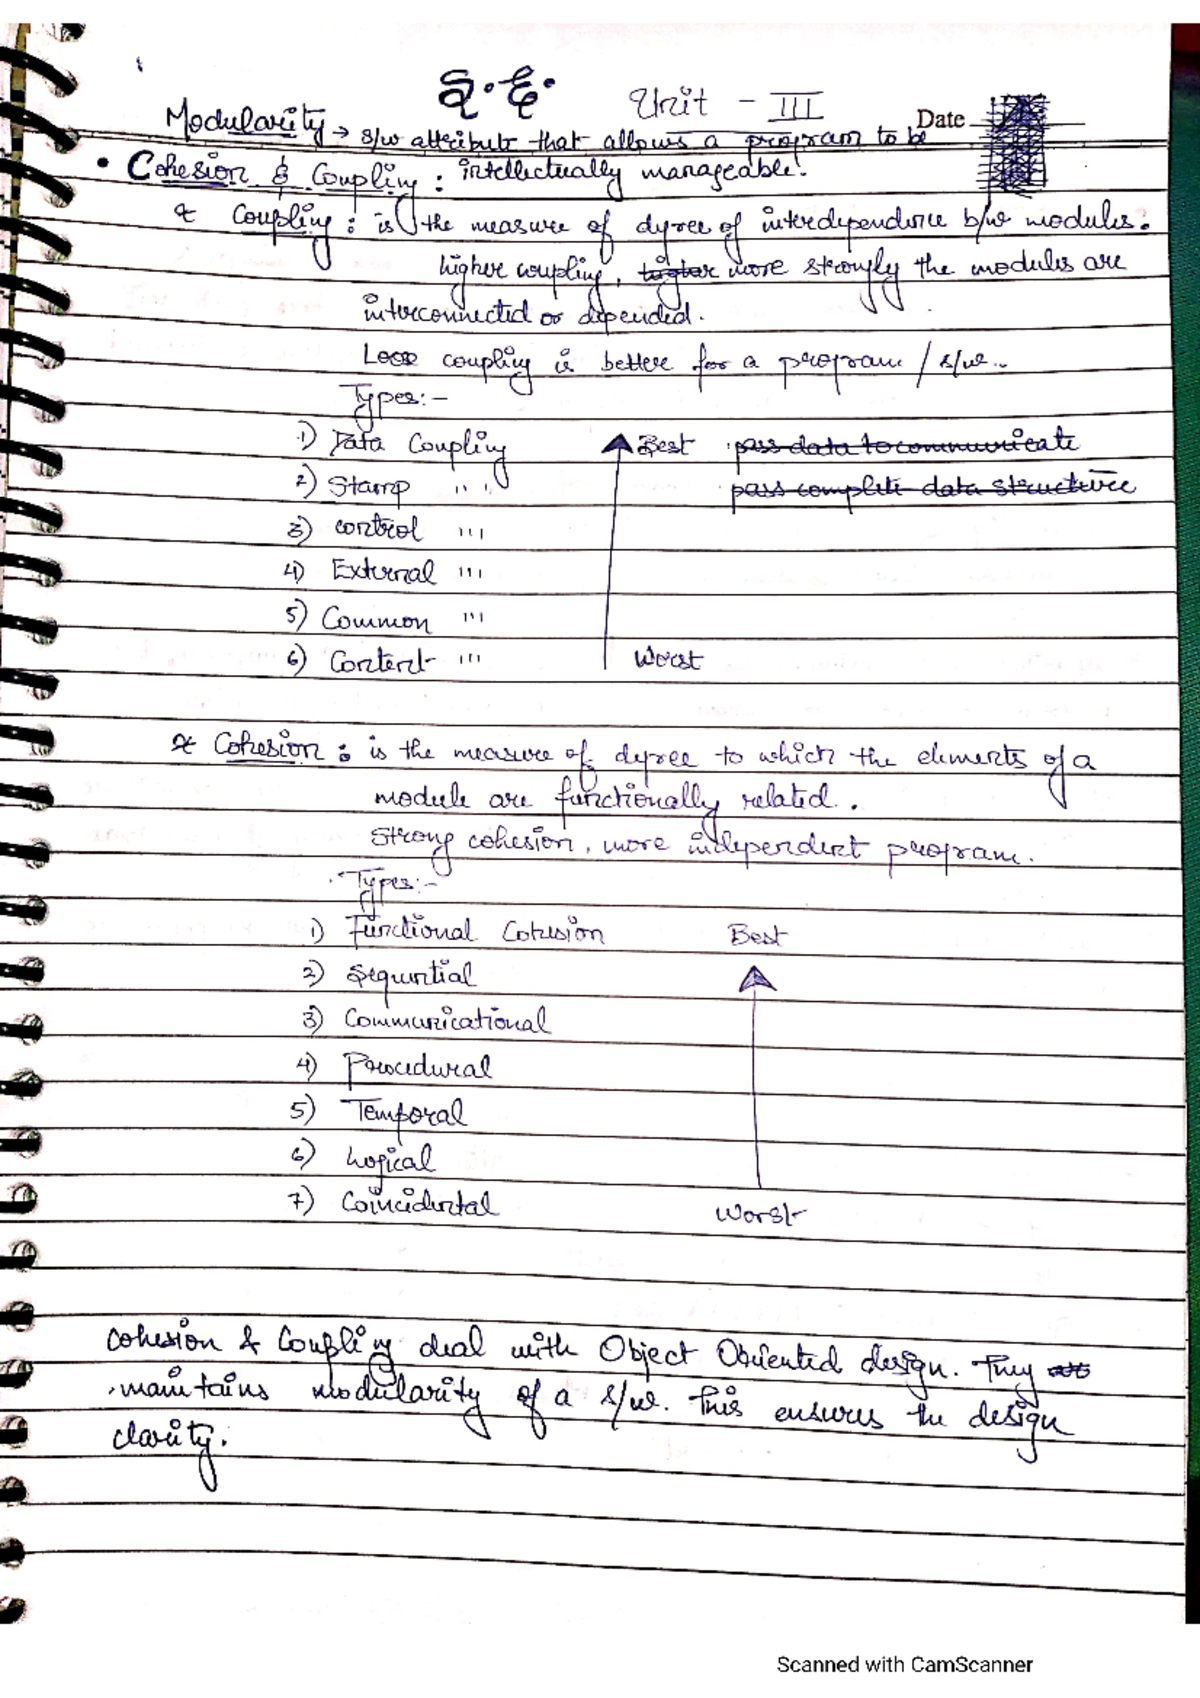 Unit - III
Date
Modularity → s/w attribute that allows a program to be
• Cohesion & Coupling : intellectually manageable.
Coupling : is the measure of degree of interdependence b/w modules.
higher coupling, ~~higher~~ more strongly the modules are
interconnected or depended.
Less coupling is better for a program / s/w.
Types:-
1) Data Coupling Best ~~pass data to communicate~~
2) Stamp " ~~pass complete data structure~~
3) control "
4) External "
5) Common "
6) Content " Worst
Cohesion : is the measure of degree to which the elements of a
module are functionally related.
Strong cohesion, more independent program.
Types:-
1) Functional Cohesion Best
2) Sequential
3) Communicational
4) Procedural
5) Temporal
6) Logical
7) Coincidental Worst
Cohesion & Coupling deal with Object Oriented design. They
maintains modularity of a s/w. This ensures the design
clarity.
Scanned with CamScanner